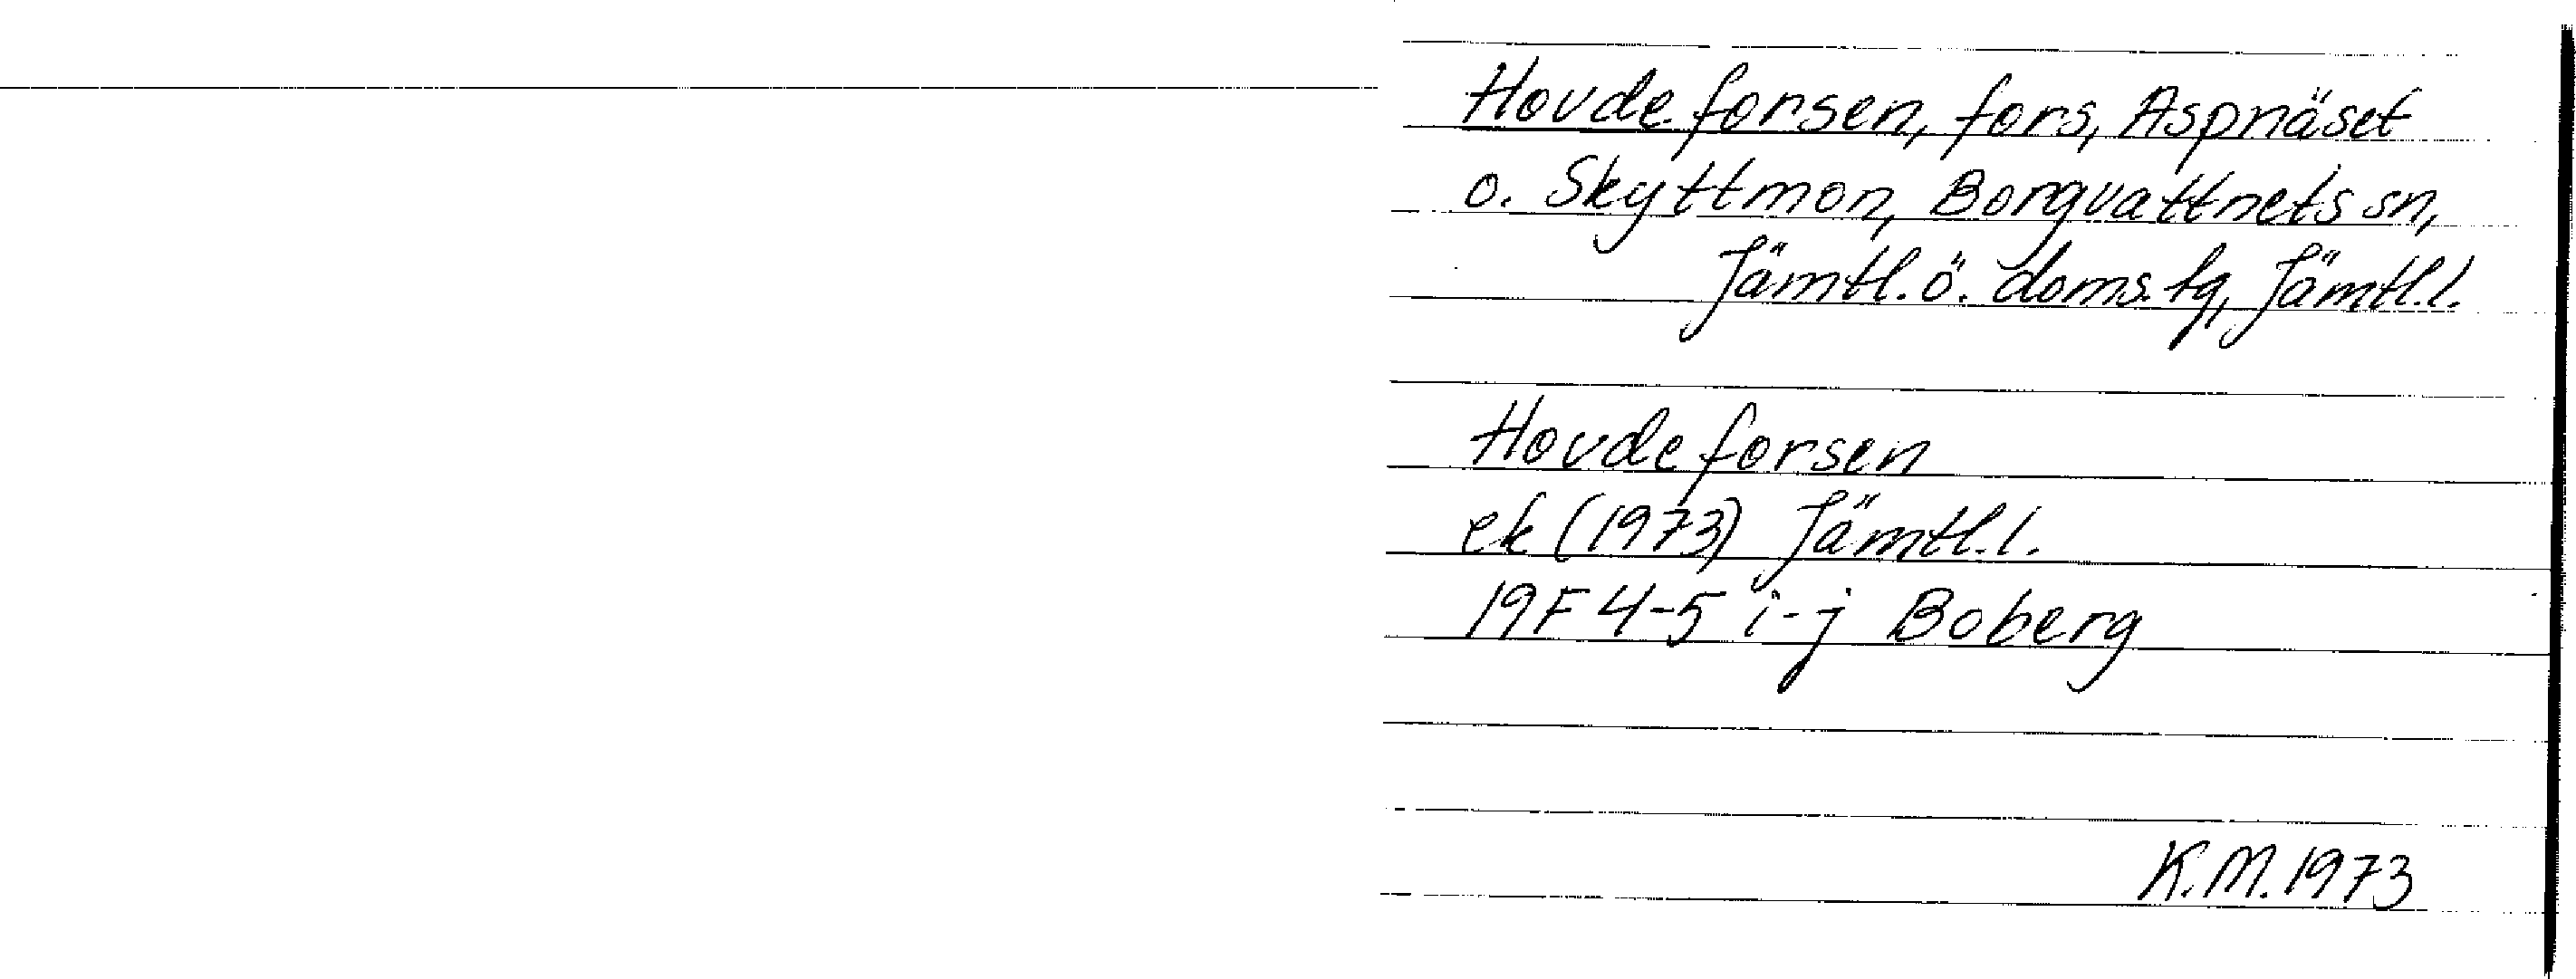 Hovdeforsen, fors, Aspnäset
o. Skyttmon, Borgvattnets sn,
Jämtl. ö. doms. tg, Jämtl. l.
Hovdeforsen
ek (1973) Jämtl. l.
19F 4-5 i-j Boberg
K.M. 1973